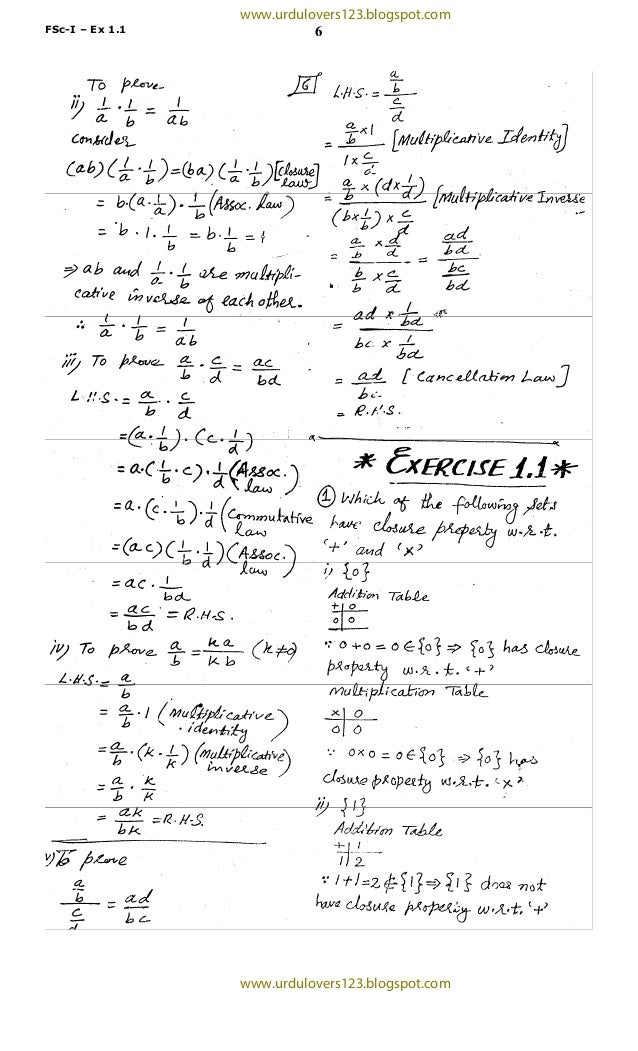 www.urdulovers123.blogspot.com
FSc-I – Ex 1.1
6
To prove
ii) 1/a · 1/b = 1/ab
consider
(ab)(1/a · 1/b) = (ba)(1/a · 1/b) [closure law]
= b·(a·1/a)·1/b (Assoc. Law)
= b·1·1/b = b·1/b = 1
⇒ ab and 1/a · 1/b are multipli-
cative inverse of each other.
∴ 1/a · 1/b = 1/ab
iii) To prove a/b · c/d = ac/bd
L.H.S. = a/b · c/d
=(a·1/b)·(c·1/d)
=a·(1/b·c)·1/d (Assoc. law)
=a·(c·1/b)·1/d (Commutative law)
=(ac)(1/b·1/d) (Assoc. law)
=ac·1/bd
=ac/bd = R.H.S.
iv) To prove a/b = ka/kb (k≠0)
L.H.S. = a/b
= a/b·1 (Multiplicative identity)
=a/b·(k·1/k) (multiplicative inverse)
=a/b·k/k
= ak/bk = R.H.S.
v) To prove
(a/b)/(c/d) = ad/bc
6
L.H.S. = (a/b)/(c/d)
= (a/b ×1)/(1×c/d) [Multiplicative Identity]
= (a/b ×(d×1/d))/((b×1/b)×c/d) [Multiplicative Inverse
= (a/b × d/d)/(b/b × c/d) = (ad/bd)/(bc/bd)
= (ad × 1/bd)/(bc × 1/bd)
= ad/bc [Cancellation Law]
= R.H.S.
* EXERCISE 1.1 *
① Which of the following sets
have closure property w.r.t.
'+' and 'x'
i) {0}
Addition Table
+ 0
0 0
∵ 0+0=0∈{0} ⇒ {0} has closure
property w.r.t. '+'
Multiplication Table
× 0
0 0
∵ 0×0=0∈{0} ⇒ {0} has
closure property w.r.t. 'x'
ii) {1}
Addition Table
+ 1
1 2
∵ 1+1=2∉{1}⇒{1} does not
have closure property w.r.t. '+'
www.urdulovers123.blogspot.com